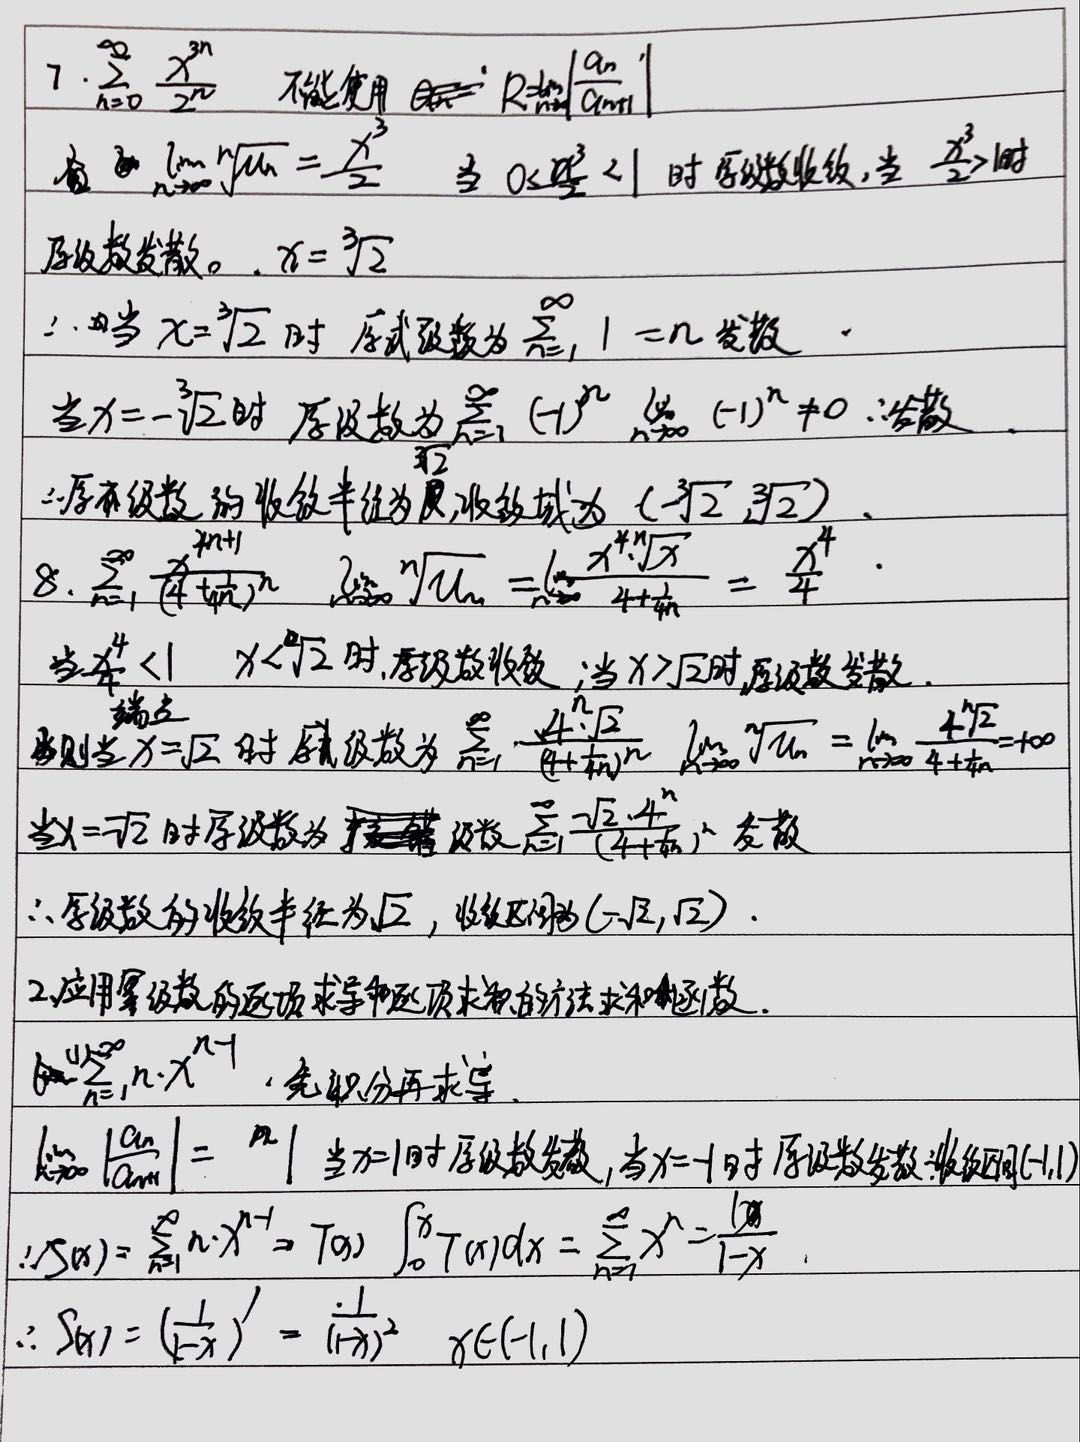 7. ∑_{n=0}^{∞} x^{3n}/2^n 不能使用 R=lim_{n→∞}|a_n/a_{n+1}|
lim_{n→∞} ⁿ√u_n = x³/2 当 0≤x³/2<1 时原级数收敛,当 x³/2>1时
原级数发散。. x=³√2
∴ 当 x=³√2 时 原式级数为 ∑_{n=1}^{∞} 1 = n 发散
当x=-³√2时 原级数为 ∑_{n=1}^{∞} (-1)^n lim_{n→∞} (-1)^n ≠0 ∴发散
∴原级数的收敛半径为³√2,收敛域为 (-³√2, ³√2)
8. ∑_{n=1}^{∞} x^{4n+1}/(4+1/4n)^n lim_{n→∞} ⁿ√u_n = lim_{n→∞} x⁴·ⁿ√x/(4+1/4n) = x⁴/4
当 x⁴/4<1 x<√2 时,原级数收敛;当 x>√2时,原级数发散.
端点
则当 x=√2 时 原式级数为 ∑_{n=1}^{∞} 4^n·√2/(4+1/4n)^n lim_{n→∞} ⁿ√u_n = lim_{n→∞} 4ⁿ√2/(4+1/4n) = +∞
当x=-√2 时原级数为 级数 ∑_{n=1}^{∞} √2·4^n/(4+1/4n)^n 发散
∴原级数的收敛半径为√2,收敛区间为(-√2,√2).
2.应用幂级数的逐项求导和逐项求积的方法求和函数.
(1) ∑_{n=1}^{∞} n·x^{n-1}. 先积分再求导.
lim_{n→∞}|a_n/a_{n+1}| = 1 当x=1时原级数发散,当x=-1时 原级数发散∴收敛区间(-1,1)
∴S(x)=∑_{n=1}^{∞} n·x^{n-1} = T(x) ∫_0^x T(x)dx = ∑_{n=1}^{∞} x^n = 1/(1-x).
∴ S(x)=(1/(1-x))′ = 1/(1-x)² x∈(-1,1)